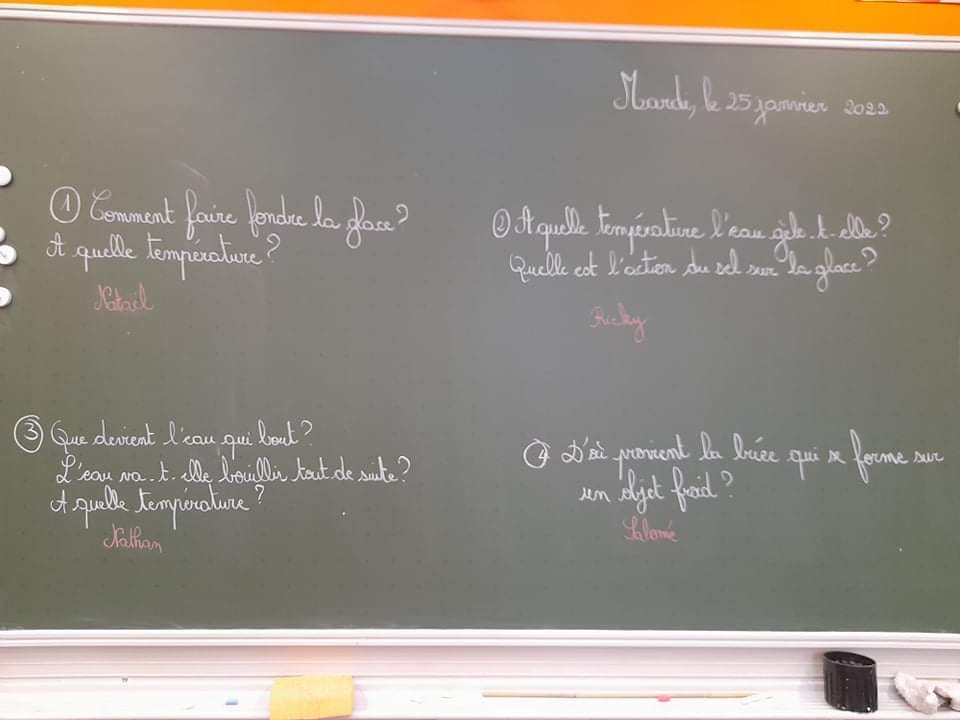 Mardi, le 25 janvier 2022
① Comment faire fondre la glace?
A quelle température?
Nataël
② A quelle température l'eau gèle-t-elle?
Quelle est l'action du sel sur la glace?
Ricky
③ Que devient l'eau qui bout?
L'eau va-t-elle bouillir tout de suite?
A quelle température?
Nathan
④ D'où provient la buée qui se forme sur
un objet froid?
Salomé